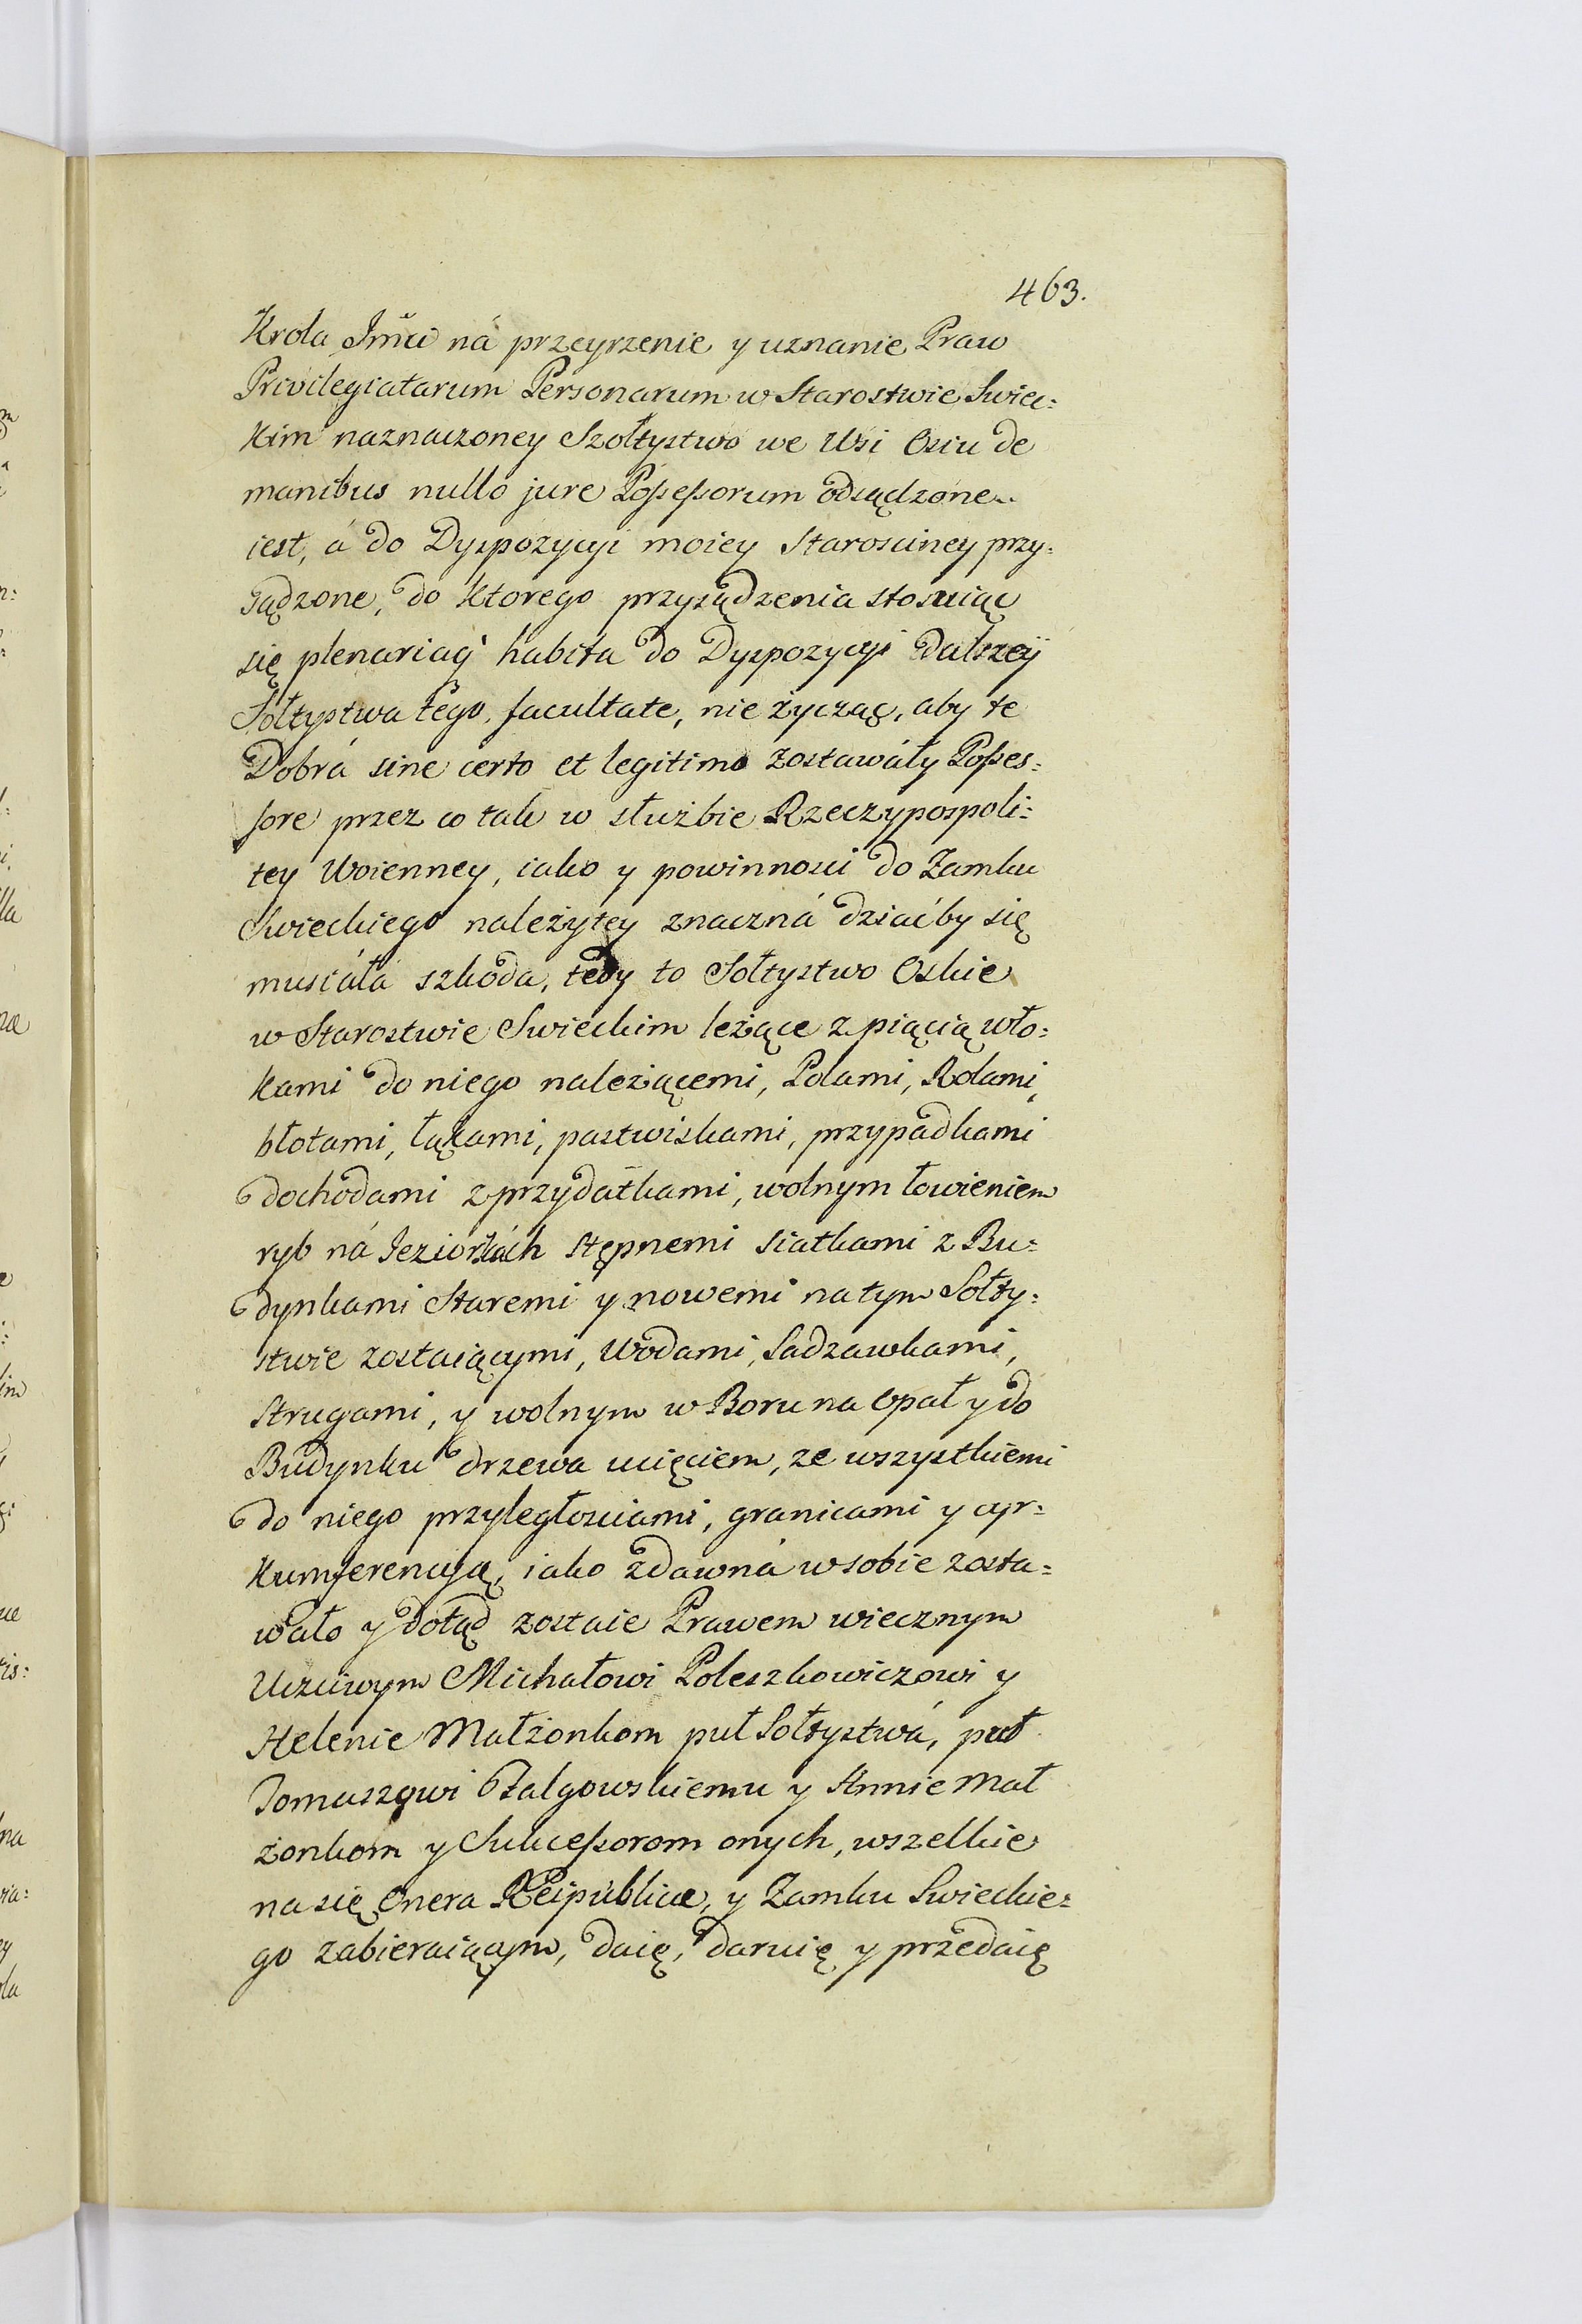 463.
Krola Jmci ná przeyrzenie y uznanie Praw
Privilegiatarum Personarum w Starostwie Swiec:
kim naznaczoney Szołtystwo we Wsi Osiu de
manibus nullo jure Possessorum odsądzone
iest, á do Dyspozycyi moiey Starosciney przy:
sądzone, do ktorego przysądzenia stosuiąc
się plenariaq habita do Dyspozycyi dalszey
Sołtystwa tego, facultate, nie życząc, aby te
Dobrá sine certo et legitimo zostawáły Posses:
sore przez co tak w służbie Rzeczypospoli:
tey Woienney, iako y powinnosci do Zamku
Swieckiego należytey znaczná dziać by się
musiáłá szkoda, tedy to Sołtystwo Oskie
w Starostwie Swieckim leżące z piącią wło:
kami do niego należiącemi, Polami, Rolami,
błotami, łąkami, pastwiskami, przypadkami
dochodami z przydatkami, wolnym łowieniem
ryb ná Jeziorkách stępnemi siatkami z Bu:
dynkami Staremi y nowemi na tym Sołty:
stwie zostaiącymi, Wodami, Sadzawkami,
Strugami, y wolnym w Boru na Opał y do
Budynku drzewa ucięciem, ze wszystkiemi
do niego przyległosciami, granicami y cyr:
kumferencyą, iako zdawná w sobie zosta:
wało y dotąd zostaie Prawem wiecznym
Uczciwym Michałowi Poleszkowiczowi y
Helenie Małżonkom puł Sołtystwá, puł
Tomaszowi Załgowskiemu y Annie Mał
żonkom y Sukcessorom onych, wszelkie
na się Onera Reipublicæ, y Zamku Swieckie:
go zabieraiącym, daię, daruię y przedaię